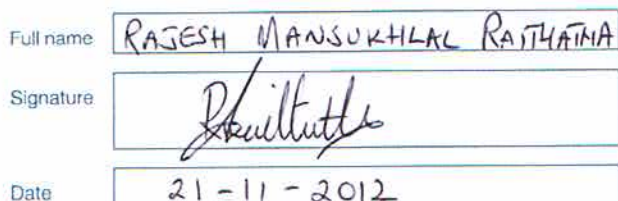 Full name RAJESH MANSUKHLAL RAITHATHA
Signature
Date 21-11-2012